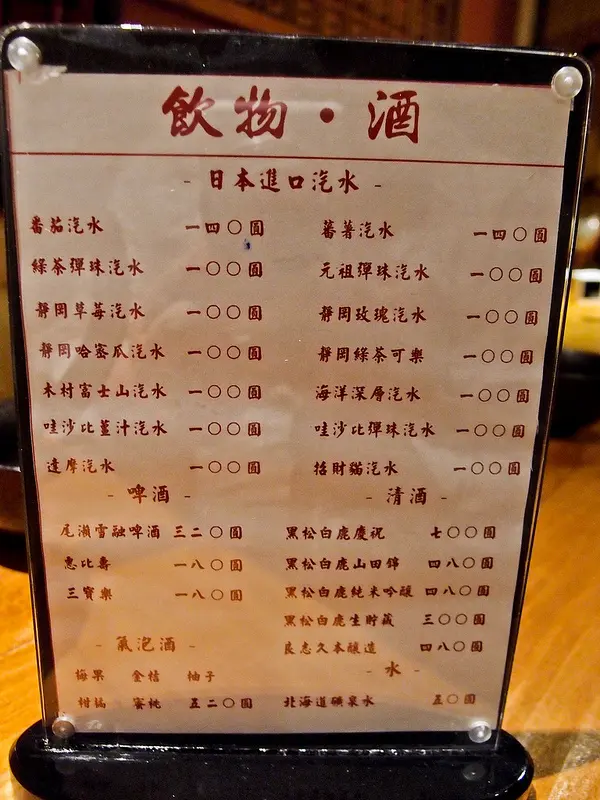 飲物・酒
- 日本進口汽水 -
番茄汽水 一四〇圓 蕃薯汽水 一四〇圓
綠茶彈珠汽水 一〇〇圓 元祖彈珠汽水 一〇〇圓
靜岡草莓汽水 一〇〇圓 靜岡玫瑰汽水 一〇〇圓
靜岡哈密瓜汽水 一〇〇圓 靜岡綠茶可樂 一〇〇圓
木村富士山汽水 一〇〇圓 海洋深層汽水 一〇〇圓
哇沙比薑汁汽水 一〇〇圓 哇沙比彈珠汽水 一〇〇圓
達摩汽水 一〇〇圓 招財貓汽水 一〇〇圓
- 啤酒 -
尾瀨雪融啤酒 三二〇圓
惠比壽 一八〇圓
三寶樂 一八〇圓
- 氣泡酒 -
梅果 金桔 柚子
柑橘 蜜桃 五二〇圓
- 清酒 -
黑松白鹿慶祝 七〇〇圓
黑松白鹿山田錦 四八〇圓
黑松白鹿純米吟釀 四八〇圓
黑松白鹿生貯藏 三〇〇圓
良志久本釀造 四八〇圓
- 水 -
北海道礦泉水 五〇圓